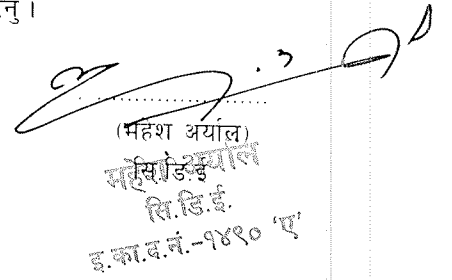 नु ।
(महेश अर्याल)
सि.डि.ई
महेश अर्याल
सि.डि.ई.
इ.का.द.नं.-१४९० 'ए'